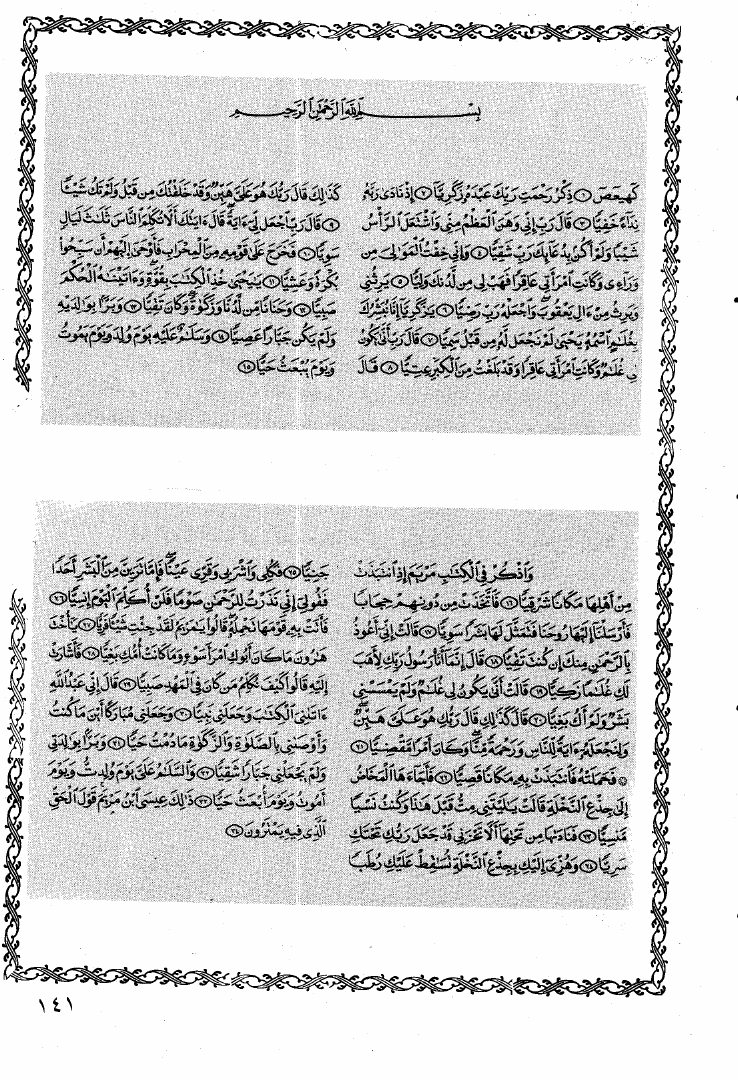 بِسْمِ ٱللَّهِ ٱلرَّحْمَٰنِ ٱلرَّحِيمِ
كٓهيعٓصٓ ١ ذِكْرُ رَحْمَتِ رَبِّكَ عَبْدَهُۥ زَكَرِيَّآ ٢ إِذْ نَادَىٰ رَبَّهُۥ
نِدَآءً خَفِيًّا ٣ قَالَ رَبِّ إِنِّى وَهَنَ ٱلْعَظْمُ مِنِّى وَٱشْتَعَلَ ٱلرَّأْسُ
شَيْبًا وَلَمْ أَكُنۢ بِدُعَآئِكَ رَبِّ شَقِيًّا ٤ وَإِنِّى خِفْتُ ٱلْمَوَٰلِىَ مِن
وَرَآءِى وَكَانَتِ ٱمْرَأَتِى عَاقِرًا فَهَبْ لِى مِن لَّدُنكَ وَلِيًّا ٥ يَرِثُنِى
وَيَرِثُ مِنْ ءَالِ يَعْقُوبَ وَٱجْعَلْهُ رَبِّ رَضِيًّا ٦ يَٰزَكَرِيَّآ إِنَّا نُبَشِّرُكَ
بِغُلَٰمٍ ٱسْمُهُۥ يَحْيَىٰ لَمْ نَجْعَل لَّهُۥ مِن قَبْلُ سَمِيًّا ٧ قَالَ رَبِّ أَنَّىٰ يَكُونُ
لِى غُلَٰمٌ وَكَانَتِ ٱمْرَأَتِى عَاقِرًا وَقَدْ بَلَغْتُ مِنَ ٱلْكِبَرِ عِتِيًّا ٨ قَالَ
كَذَٰلِكَ قَالَ رَبُّكَ هُوَ عَلَىَّ هَيِّنٌ وَقَدْ خَلَقْتُكَ مِن قَبْلُ وَلَمْ تَكُ شَيْـًٔا
٩ قَالَ رَبِّ ٱجْعَل لِّىٓ ءَايَةً قَالَ ءَايَتُكَ أَلَّا تُكَلِّمَ ٱلنَّاسَ ثَلَٰثَ لَيَالٍ
سَوِيًّا ١٠ فَخَرَجَ عَلَىٰ قَوْمِهِۦ مِنَ ٱلْمِحْرَابِ فَأَوْحَىٰٓ إِلَيْهِمْ أَن سَبِّحُوا۟
بُكْرَةً وَعَشِيًّا ١١ يَٰيَحْيَىٰ خُذِ ٱلْكِتَٰبَ بِقُوَّةٍ وَءَاتَيْنَٰهُ ٱلْحُكْمَ
صَبِيًّا ١٢ وَحَنَانًا مِّن لَّدُنَّا وَزَكَوٰةً وَكَانَ تَقِيًّا ١٣ وَبَرًّۢا بِوَٰلِدَيْهِ
وَلَمْ يَكُن جَبَّارًا عَصِيًّا ١٤ وَسَلَٰمٌ عَلَيْهِ يَوْمَ وُلِدَ وَيَوْمَ يَمُوتُ
وَيَوْمَ يُبْعَثُ حَيًّا ١٥
وَٱذْكُرْ فِى ٱلْكِتَٰبِ مَرْيَمَ إِذِ ٱنتَبَذَتْ
مِنْ أَهْلِهَا مَكَانًا شَرْقِيًّا ١٦ فَٱتَّخَذَتْ مِن دُونِهِمْ حِجَابًا
فَأَرْسَلْنَآ إِلَيْهَا رُوحَنَا فَتَمَثَّلَ لَهَا بَشَرًا سَوِيًّا ١٧ قَالَتْ إِنِّىٓ أَعُوذُ
بِٱلرَّحْمَٰنِ مِنكَ إِن كُنتَ تَقِيًّا ١٨ قَالَ إِنَّمَآ أَنَا۠ رَسُولُ رَبِّكِ لِأَهَبَ
لَكِ غُلَٰمًا زَكِيًّا ١٩ قَالَتْ أَنَّىٰ يَكُونُ لِى غُلَٰمٌ وَلَمْ يَمْسَسْنِى
بَشَرٌ وَلَمْ أَكُ بَغِيًّا ٢٠ قَالَ كَذَٰلِكِ قَالَ رَبُّكِ هُوَ عَلَىَّ هَيِّنٌ
وَلِنَجْعَلَهُۥٓ ءَايَةً لِّلنَّاسِ وَرَحْمَةً مِّنَّا وَكَانَ أَمْرًا مَّقْضِيًّا ٢١
۞ فَحَمَلَتْهُ فَٱنتَبَذَتْ بِهِۦ مَكَانًا قَصِيًّا ٢٢ فَأَجَآءَهَا ٱلْمَخَاضُ
إِلَىٰ جِذْعِ ٱلنَّخْلَةِ قَالَتْ يَٰلَيْتَنِى مِتُّ قَبْلَ هَٰذَا وَكُنتُ نَسْيًا
مَّنسِيًّا ٢٣ فَنَادَىٰهَا مِن تَحْتِهَآ أَلَّا تَحْزَنِى قَدْ جَعَلَ رَبُّكِ تَحْتَكِ
سَرِيًّا ٢٤ وَهُزِّىٓ إِلَيْكِ بِجِذْعِ ٱلنَّخْلَةِ تُسَٰقِطْ عَلَيْكِ رُطَبًا
جَنِيًّا ٢٥ فَكُلِى وَٱشْرَبِى وَقَرِّى عَيْنًا فَإِمَّا تَرَيِنَّ مِنَ ٱلْبَشَرِ أَحَدًا
فَقُولِىٓ إِنِّى نَذَرْتُ لِلرَّحْمَٰنِ صَوْمًا فَلَنْ أُكَلِّمَ ٱلْيَوْمَ إِنسِيًّا ٢٦
فَأَتَتْ بِهِۦ قَوْمَهَا تَحْمِلُهُۥ قَالُوا۟ يَٰمَرْيَمُ لَقَدْ جِئْتِ شَيْـًٔا فَرِيًّا ٢٧ يَٰٓأُخْتَ
هَٰرُونَ مَا كَانَ أَبُوكِ ٱمْرَأَ سَوْءٍ وَمَا كَانَتْ أُمُّكِ بَغِيًّا ٢٨ فَأَشَارَتْ
إِلَيْهِ قَالُوا۟ كَيْفَ نُكَلِّمُ مَن كَانَ فِى ٱلْمَهْدِ صَبِيًّا ٢٩ قَالَ إِنِّى عَبْدُ ٱللَّهِ
ءَاتَىٰنِىَ ٱلْكِتَٰبَ وَجَعَلَنِى نَبِيًّا ٣٠ وَجَعَلَنِى مُبَارَكًا أَيْنَ مَا كُنتُ
وَأَوْصَٰنِى بِٱلصَّلَوٰةِ وَٱلزَّكَوٰةِ مَا دُمْتُ حَيًّا ٣١ وَبَرًّۢا بِوَٰلِدَتِى
وَلَمْ يَجْعَلْنِى جَبَّارًا شَقِيًّا ٣٢ وَٱلسَّلَٰمُ عَلَىَّ يَوْمَ وُلِدتُّ وَيَوْمَ
أَمُوتُ وَيَوْمَ أُبْعَثُ حَيًّا ٣٣ ذَٰلِكَ عِيسَى ٱبْنُ مَرْيَمَ قَوْلَ ٱلْحَقِّ
ٱلَّذِى فِيهِ يَمْتَرُونَ ٣٤
١٤١